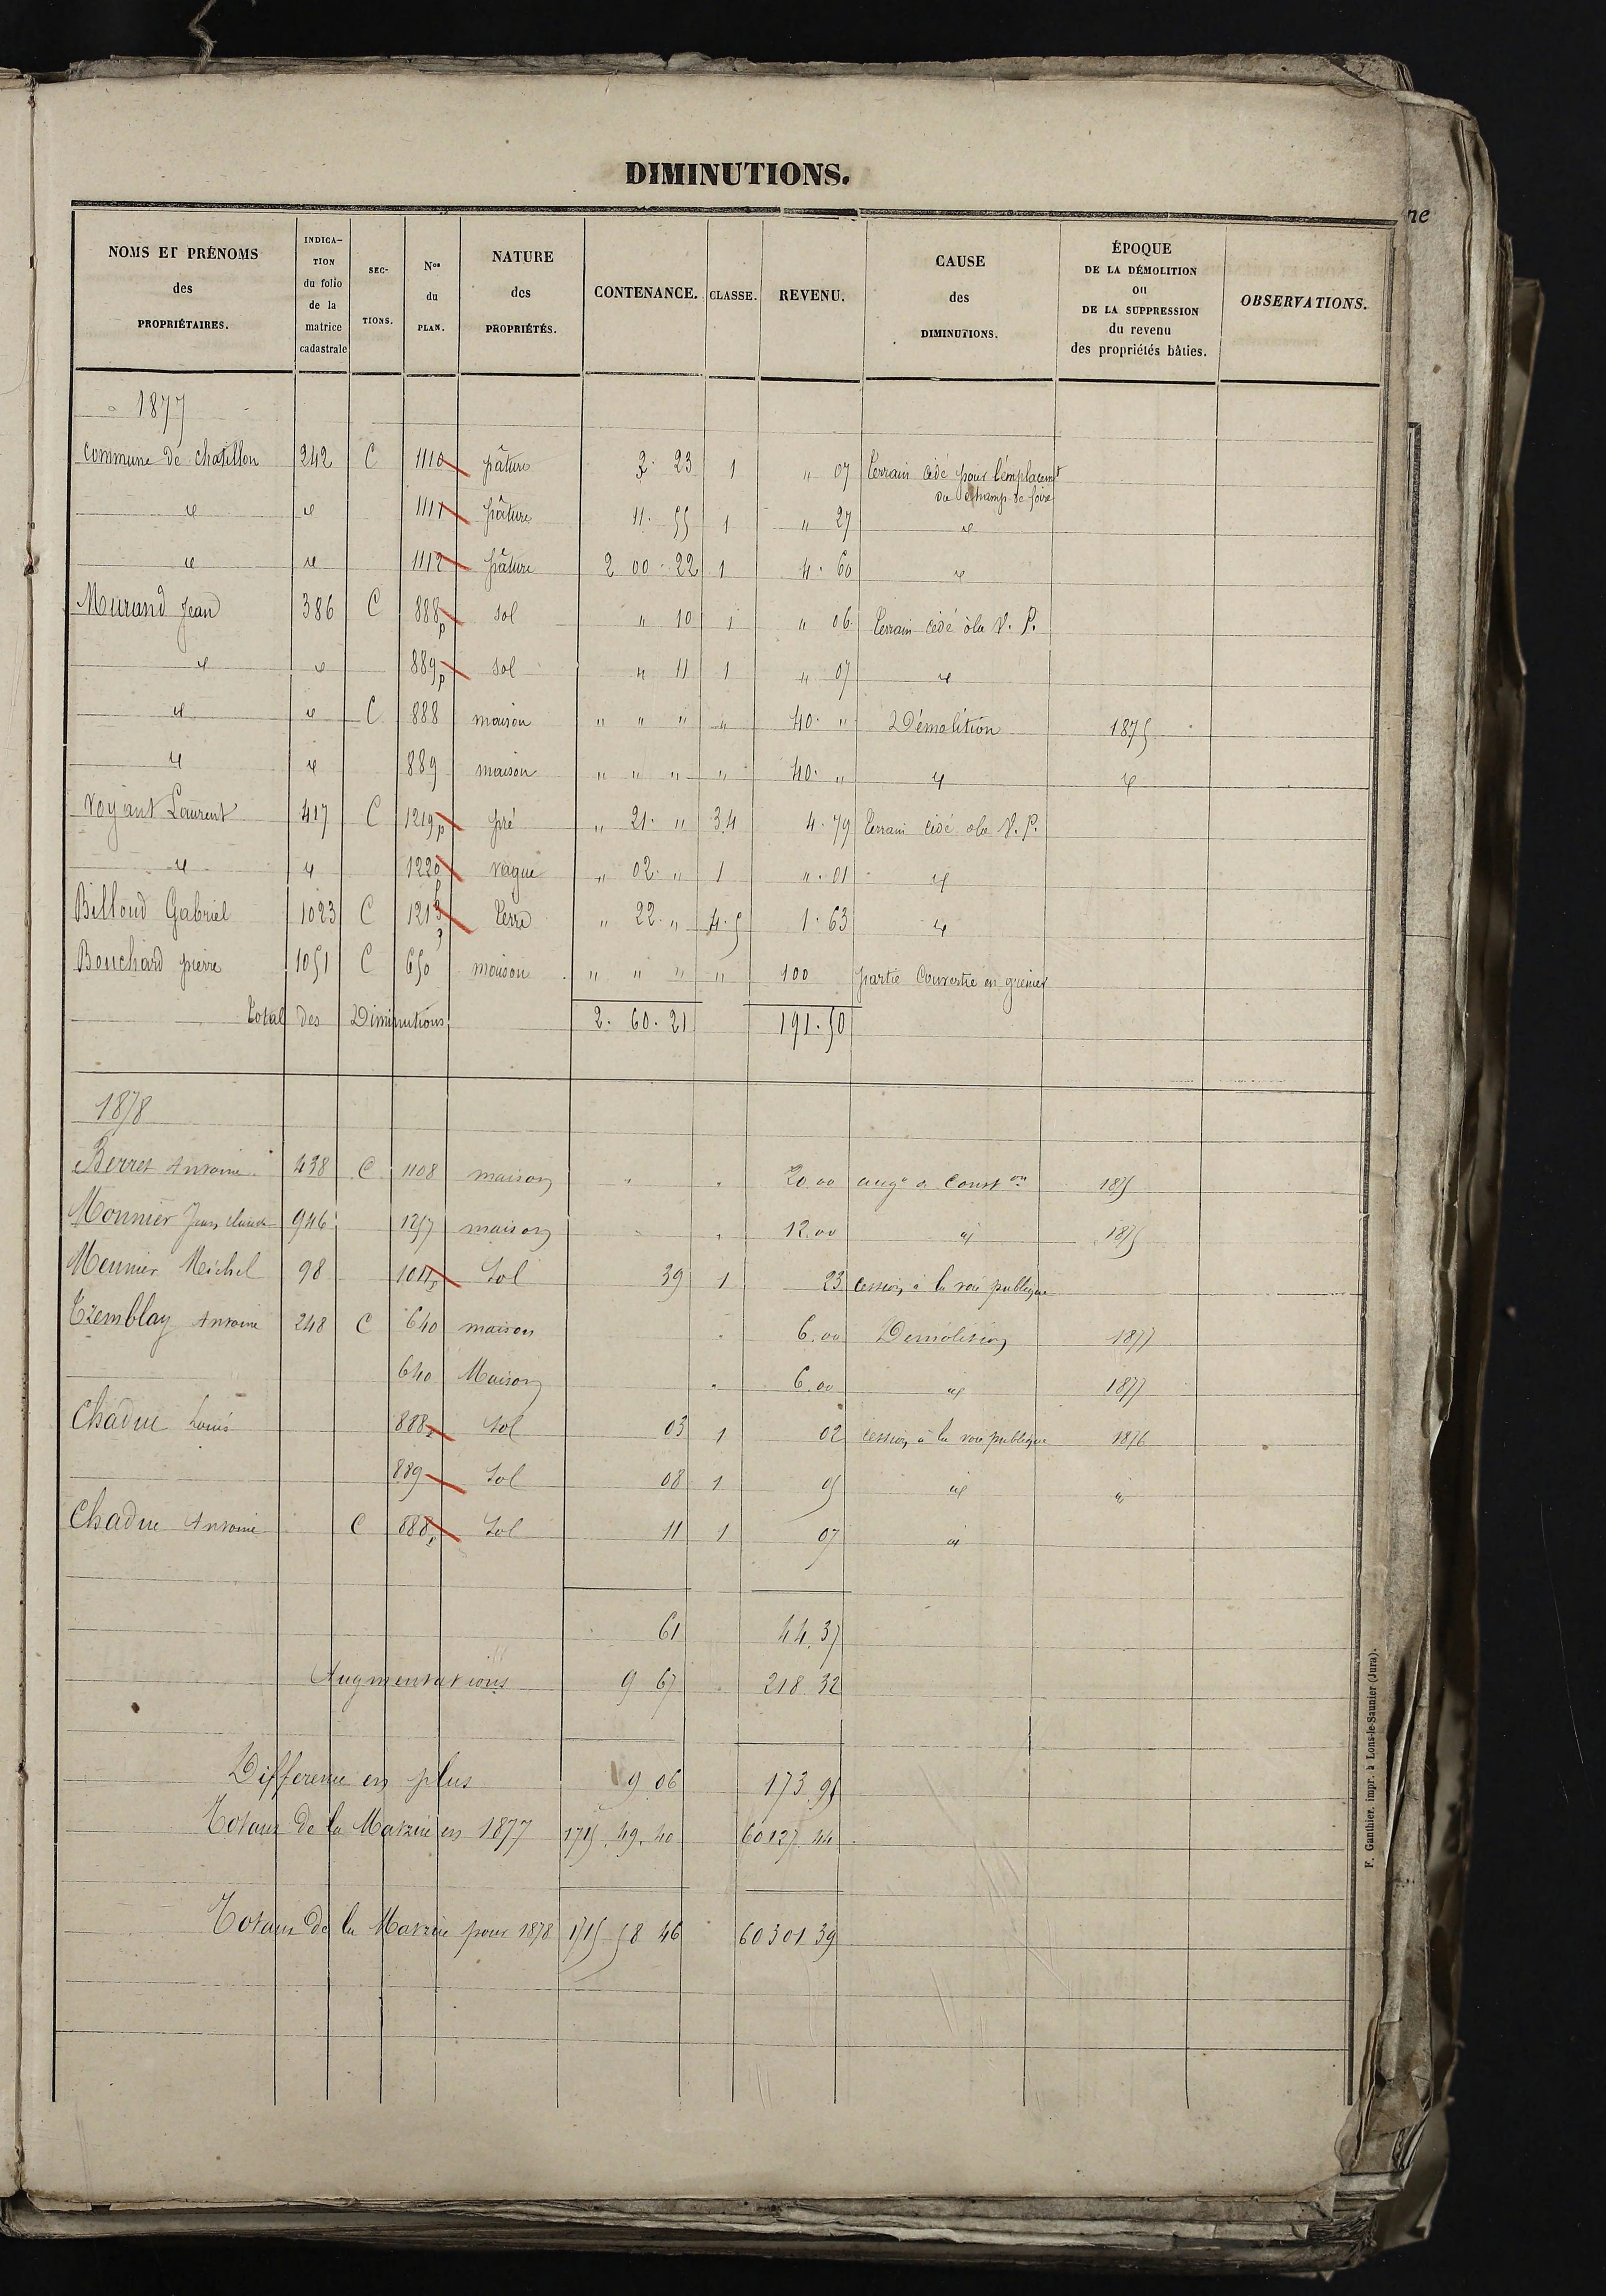 DIMINUTIONS.
NOMS ET PRÉNOMS des PROPRIÉTAIRES. | INDICATION du folio de la matrice cadastrale | SECTIONS. | Nos du PLAN. | NATURE des PROPRIÉTÉS. | CONTENANCE. | CLASSE. | REVENU. | CAUSE des DIMINUTIONS. | ÉPOQUE DE LA DÉMOLITION ou DE LA SUPPRESSION du revenu des propriétés bâties. | OBSERVATIONS.
1877
Commune de chatillon 242 C 1110 pâture 3. 23 1 " 07 terrain cédé pour l'emplacemt
du champ de foire
d d 1111 pâture 11. 55 1 " 27 d
d d 1112 pâture 2 00. 22 1 4. 60 d
Murand Jean 386 C 888p sol " 10 1 " 06 terrain cédé à la V. P.
d d 889p sol " 11 1 " 07 d
d d C 888 maison " " " " 40. " Démolition 1875
d d 889 maison " " " " 40. " d d
Voyant Laurent 417 C 1219p pré " 21. " 3.4 4. 79 terrain cédé à la V. P.
d d 1220 vague " 02. " 1 ". 01 d
Billoud Gabriel 1023 C 1213 terre " 22. " 4.5 1. 63 d
Bouchard pierre 1051 C 650 maison " " " " 100 partie Convertie en grenier
total des Diminutions 2. 60. 21 191. 50
1878
Berret Antoine 438 C 1108 maison 20 00 augon de Conston 1875
Monnier Jean claude 946 1257 maison 12.00 d 1875
Meunier Michel 98 1011p Sol 39 1 23 cession à la voie publique
Tremblay Antoine 248 C 640 maison 6.00 Démolition 1877
640 Maison 6.00 d 1877
Chadue Louis 888p Sol 03 1 02 cession à la voie publique 1876
889 Sol 08 1 05 d d
Chadue Antoine C 888p Sol 11 1 07 d
61 44.37
Augmentations 9 67 218 32
Difference en plus 9 06 173.95
Totaux de la Matrice en 1877 1715. 49. 40 60127 44
Totaux de la Matrice pour 1878 1715 58 46 60301 39
F. Gauthier, impr. à Lons-le-Saunier (Jura).
ne